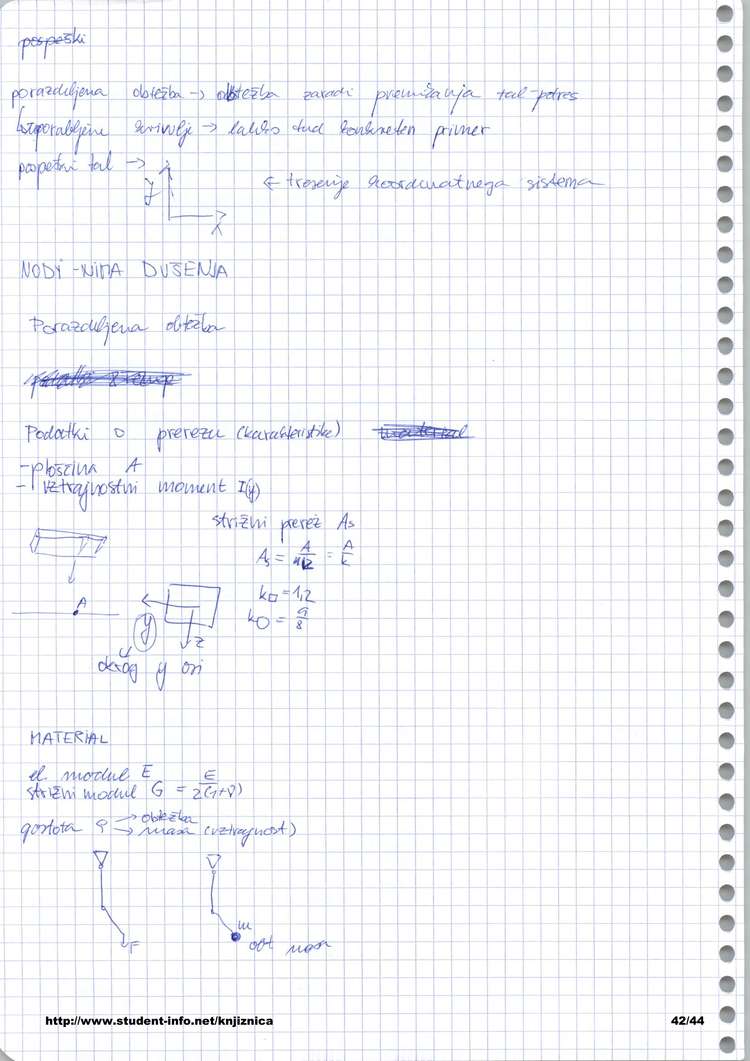 pospeški
porazdeljena obtežba → obtežba zaradi premikanja tal-potres
uporabljene krivulje → lahko tud konkreten primer
pospeški tal →
y
x
← tresenje koordinatnega sistema
NODI - NIMA DUŠENJA
Porazdeljena obtežba
Podatki o prerezu (karakteristike)
- ploščina A
- vztrajnostni moment I(y)
strižni prerez As
As = A/1,2 = A/k
A
k□ = 1,2
k○ = 9/8
y
z
okrog y osi
MATERIAL
el. modul E
strižni modul G = E/2(1+ν)
gostota ρ → obtežba
→ masa (vztrajnost)
F
m
masa
http://www.student-info.net/knjiznica
42/44